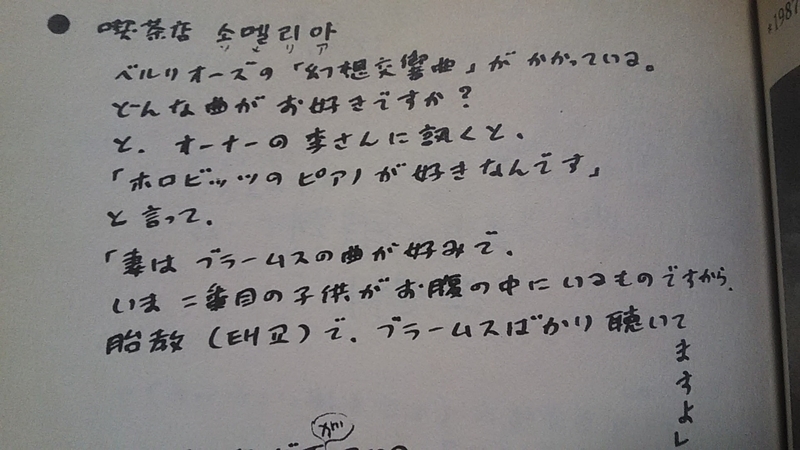 ● 喫茶店 소멜리아
ソメリア
ベルリオーズの「幻想交響曲」がかかっている。
どんな曲がお好きですか?
と、オーナーの李さんに訊くと、
「ホロビッツのピアノが好きなんです」
と言って、
「妻はブラームスの曲が好みで、
いま二番目の子供がお腹の中にいるものですから、
胎教(태교)で、ブラームスばかり聴いて
ますよ」
1987